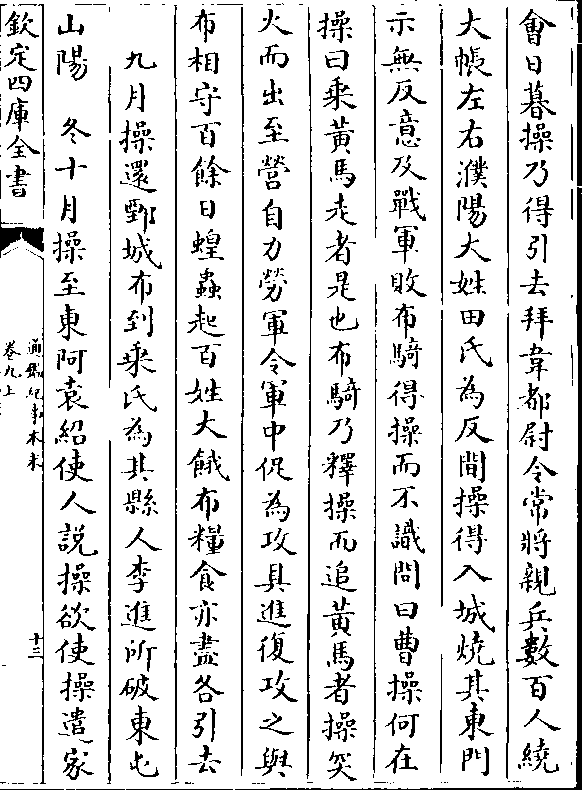 會日暮操乃得引去拜韋都尉令常將親兵數百人繞
大帳左右濮陽大姓田氏為反間操得入城燒其東門
示無反意及戰軍敗布騎得操而不識問曰曹操何在
操曰乘黃馬走者是也布騎乃釋操而追黃馬者操突
火而出至營自力勞軍令軍中促為攻具進復攻之與
布相守百餘日蝗蟲起百姓大餓布糧食亦盡各引去
九月操還鄄城布到乘氏為其縣人李進所破東屯
山陽 冬十月操至東阿袁紹使人說操欲使操遣家
欽定四庫全書
通鑑紀事本末
卷九上
十三